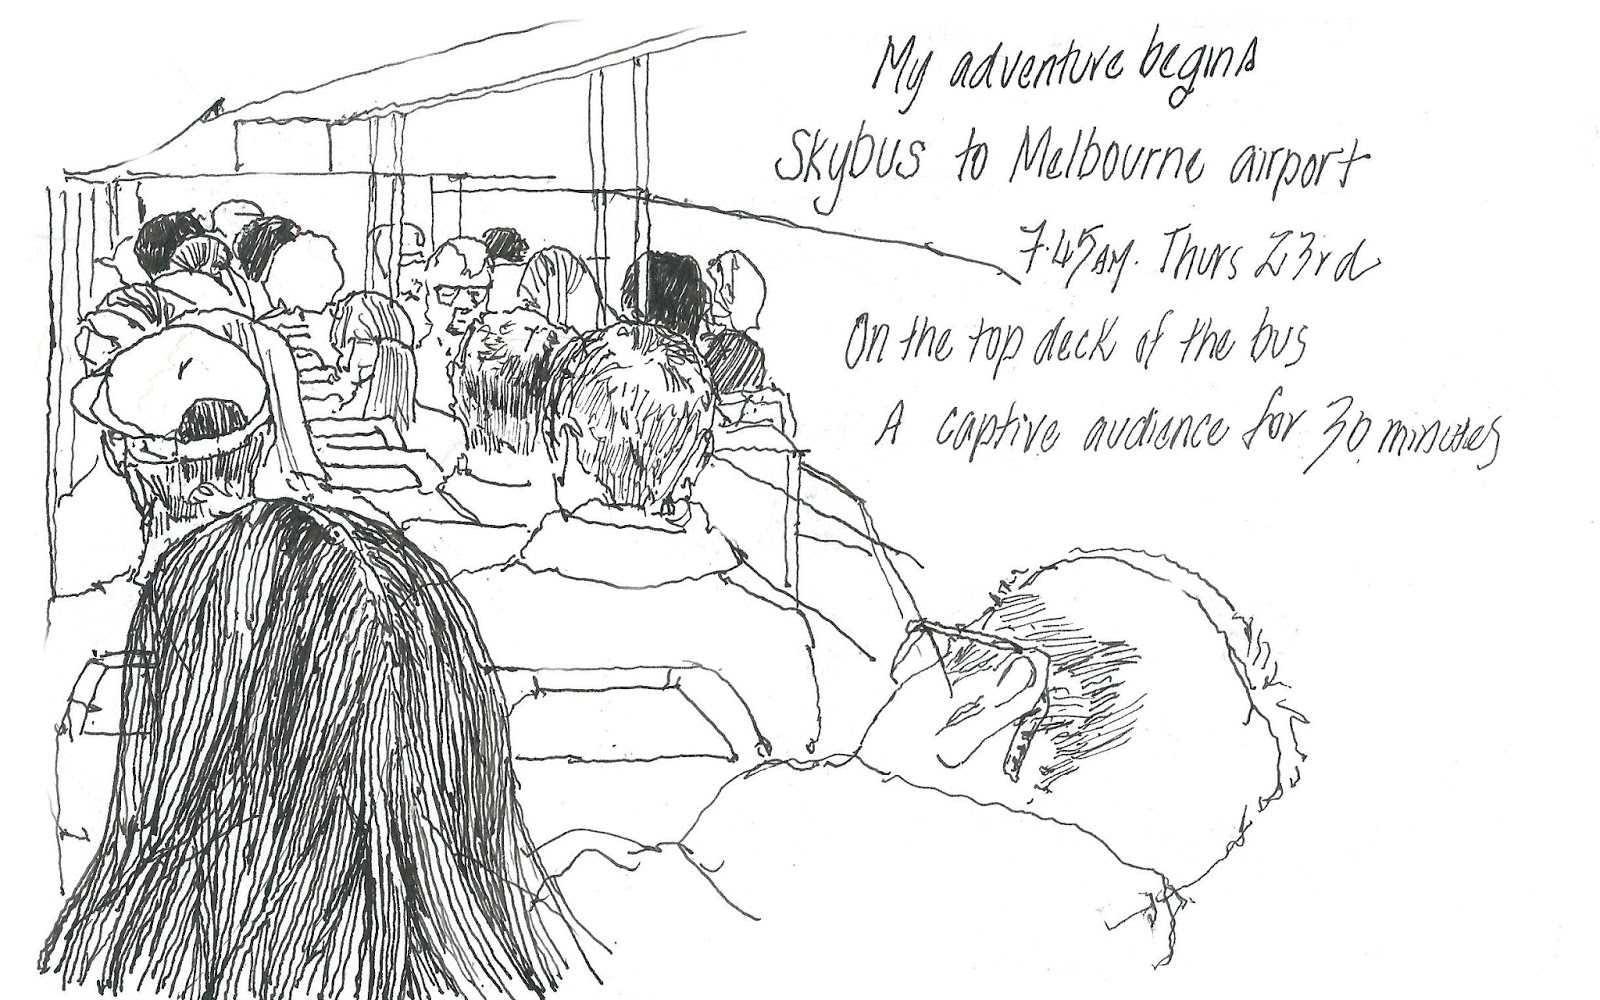 My adventure begins
Skybus to Melbourne airport
7.45AM. Thurs 23rd
On the top deck of the bus
A captive audience for 30 minutes